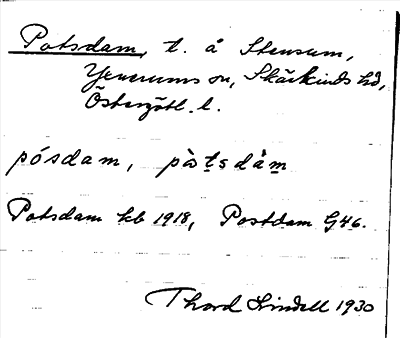 Potsdam, t. å Stensum,
Yxnerums sn, Skärkinds hd,
Östergötl. l.
pósdam, pàtsdàm
Potsdam kb 1918, Postdam G46.
Thord Lindell 1930